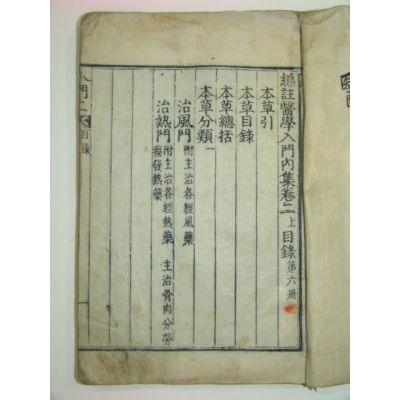 編註醫學入門內集卷二上目錄 第六冊
本草引
本草目錄
本草總括
本草分類一
治風門 附主治各經風藥
治熱門 附主治各經熱藥 主治骨肉分勞瘵發熱藥
入門二 目錄